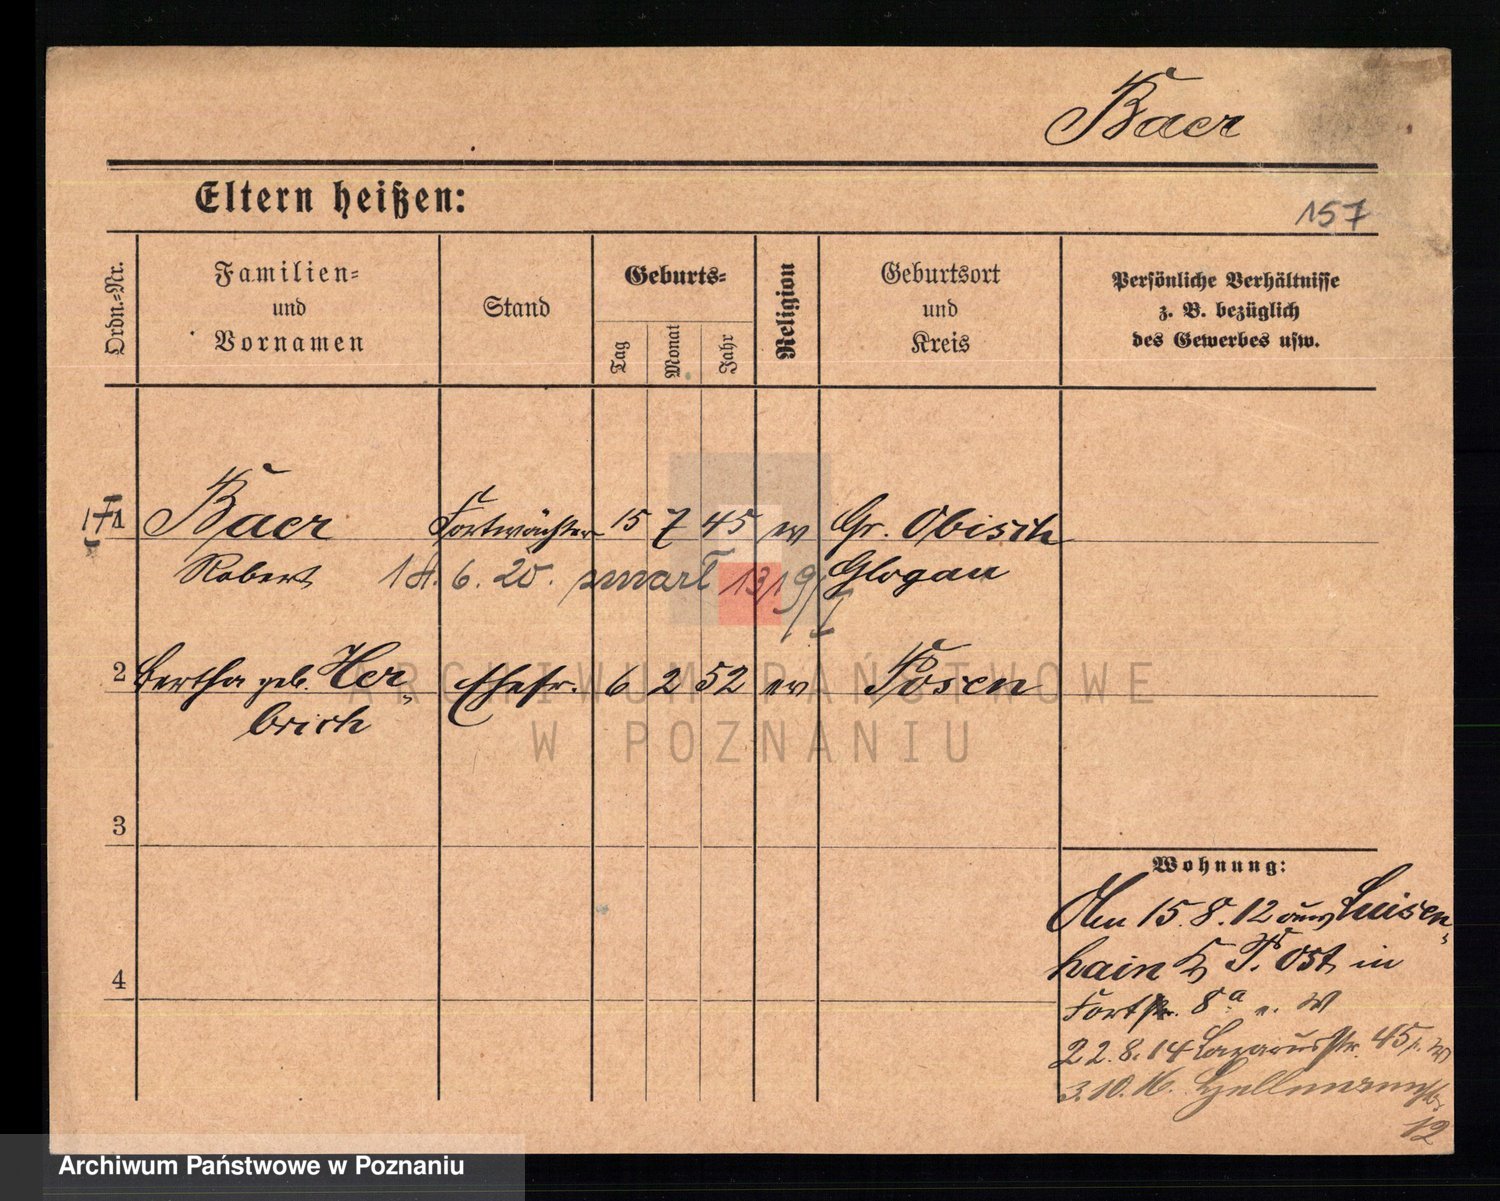 Baer
Eltern heißen:
157
Ordn.-Nr.
Familien-
und
Vornamen
Stand
Geburts-
Tag
Monat
Jahr
Religion
Geburtsort
und
Kreis
Persönliche Verhältnisse
z. B. bezüglich
des Gewerbes usw.
1 Baer Fortwächter 15 7 45 ev Gr. Obisch
Robert 6. 20. Glogau
2 Bertha geb. Her- Ehefr. 6 2 52 ev Posen
brich
3
4
Wohnung:
Am 15.8.12 aus Luisen-
hain P. Ost in
Fortstr. 8a
22.8.14 Lazarusstr. 45
3.10.16.
12
ARCHIWUM PAŃSTWOWE
W POZNANIU
Archiwum Państwowe w Poznaniu